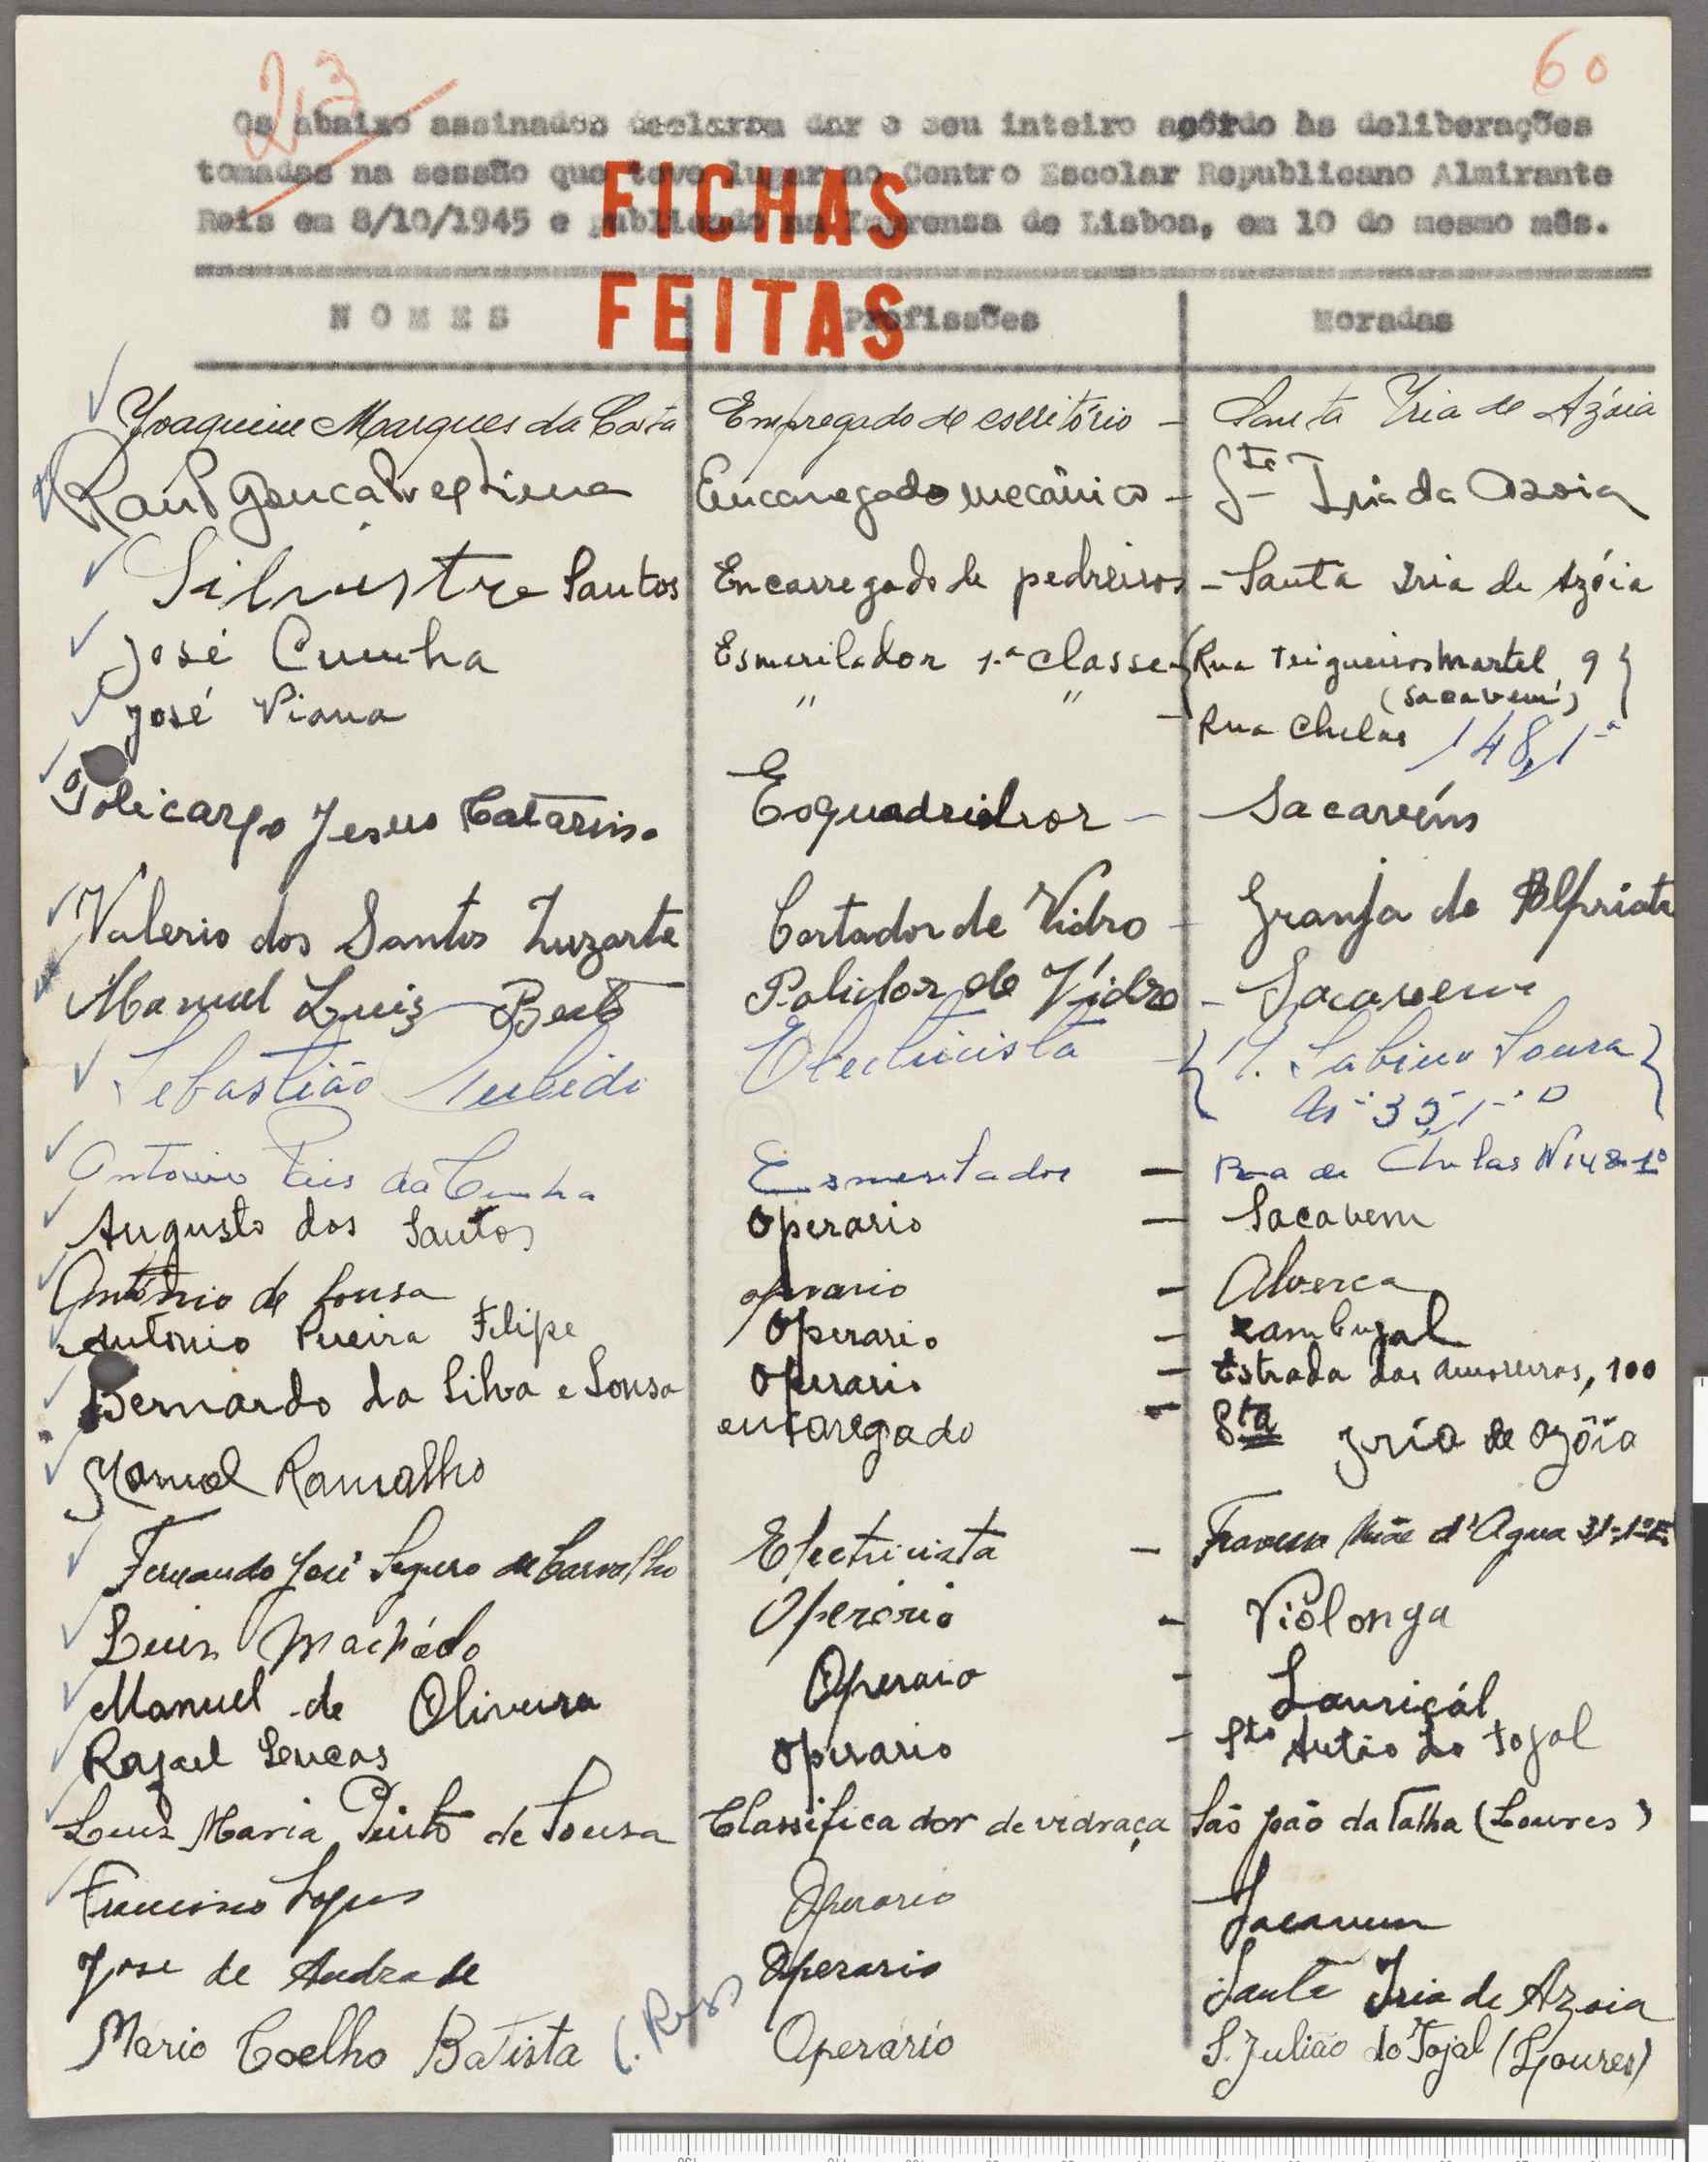 23
60
Os abaixo assinados declaram dar o seu inteiro acôrdo às deliberações
tomadas na sessão que teve lugar no Centro Escolar Republicano Almirante
Reis em 8/10/1945 e publicado na Imprensa de Lisboa, em 10 do mesmo mês.
FICHAS
FEITAS
NOMES Profissões Moradas
Joaquim Marques da Costa Empregado de escritório - Santa Iria de Azóia
Raúl Gonçalves Encarregado mecânico - Sta Iria da Azoia
Silvestre Santos Encarregado de pedreiros - Santa Iria de Azóia
José Cunha Esmerilador 1.ª classe - Rua Trigueiros Martel, 9
(Sacavem)
José Viana " " - Rua Chelas 148, 1-º
Policarpo Jesus Catarino - Sacavém
Valerio dos Santos Luzarte Cortador de Vidro - Granja de Alpriate
Manuel Luiz Polidor de Vidro - Sacavem
Sebastião Electricista - Sabino Sousa
Nº 35, 1-º D
Antonio da Cunha Esmerilador - Rua de Chelas Nº 148-1º
Augusto dos Santos Operario - Sacavem
António de Sousa operario - Alverca
Antonio Pereira Filipe Operario - Zambujal
Bernardo da Silva e Sousa Operario - Estrada das Amoreiras, 100
Manuel Ramalho encaregado - Sta Iria de Azóia
Fernando José Seguro de Carvalho Electricista - Travessa Mãe d'Agua 31-1º E
Luis Machádo Operário - Violonga
Manuel de Oliveira Operaio - Louriçál
Rafael Lucas Operario - Sto Antão do Tojal
Luis Maria Pinto de Sousa Classificador de vidraça São João da Talha (Loures)
Francisco Lopes Operario Sacavem
Jose de Andrade Operario Santa Iria de Azoia
Mário Coelho Batista Operário S. Julião do Tojal (Loures)